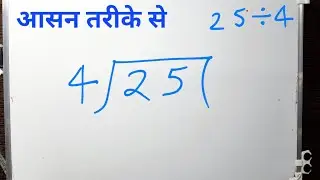 आसन तरीके से 25÷4
4)25(